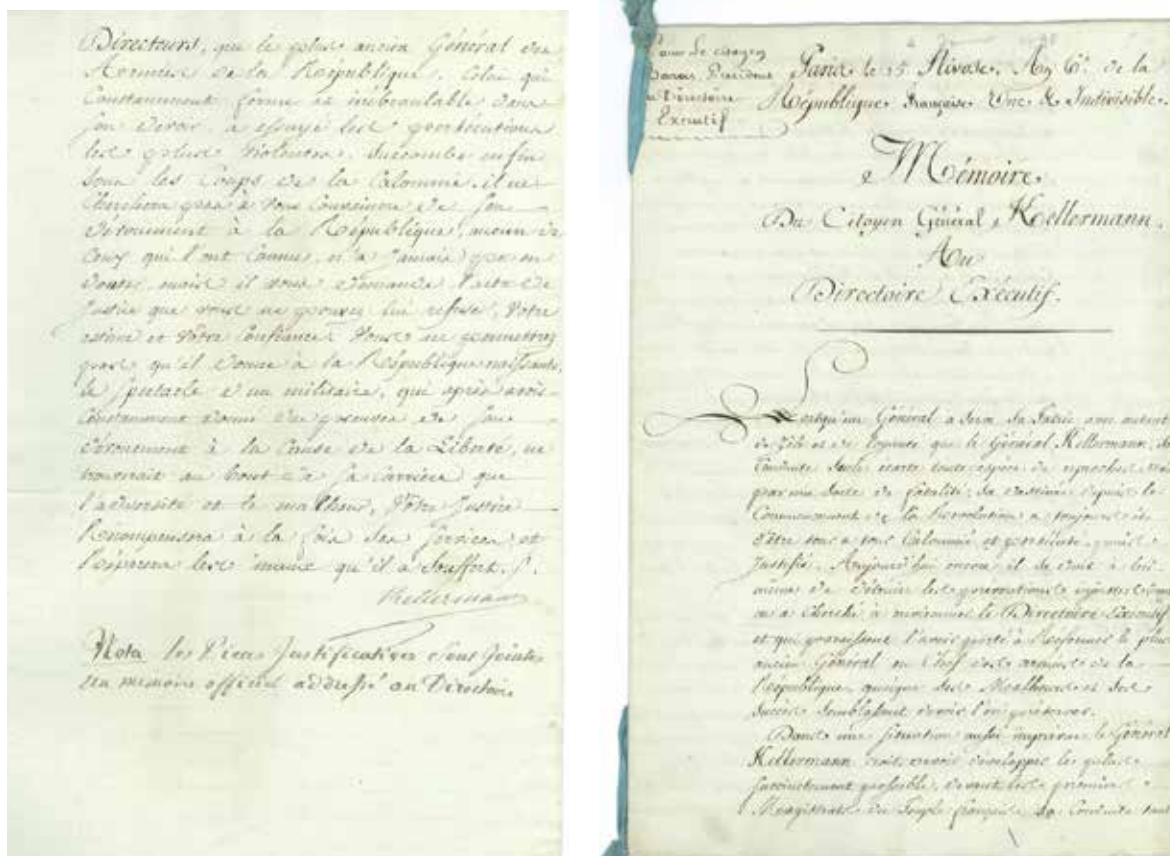 Directeurs, que le plus ancien Général des
Armées de la République. Celui qui
Constamment ferme et inébranlable dans
son devoir, a essuyé les persécutions
les plus violentes, Succombe enfin
sous les Coups de la Calomnie. il ne
Cherchera pas à vous Convaincre de son
dévouement à la République, aucun de
Ceux qui l'ont Connu, n'a Jamais pu en
douter, mais il vous demande l'acte de
Justice que vous ne pouvez lui refuser, Votre
estime et Votre Confiance. Vous ne permettrez
pas qu'il donne à la République naissante,
le Spectacle d'un militaire, qui après avoir
Constamment donné des preuves de son
dévouement à la Cause de la Liberté, ne
trouverait au bout de sa Carrière que
l'adversité et le malheur, Votre Justice
Récompensera à la fois ses Services, et
Réparera les maux qu'il a Soufferts.
Kellermann
Nota les Pièces Justificatives Sont Jointes
au mémoire officiel addressé au Directoire
Pour Le citoyen
Barras Président
du Directoire
Executif
Paris le 15 Nivose, An 6e. de la
République française Une & Indivisible.
Mémoire
Du Citoyen Général, Kellermann.
Au
Directoire Exécutif.
Lorsqu'un Général a servi Sa Patrie avec autant
de Zèle et de loyauté que le Général Kellermann, Sa
Conduite Seule écarte toute espèce de reproches. Mais
par une Sorte de fatalité, sa destinée depuis le
Commencement de la Revolution a toujours été
d'être tour a tour Calomnié et persécuté, puis
Justifié. Aujourd'hui encore, il se doit à lui-
même de détruire les préventions injustes dont
on a Cherché à environner le Directoire Executif
et qui paraissent l'avoir porté à Réformer le plus
ancien Général en Chef des armées de la
République, quoique Ses Malheurs et Ses
Succès Semblassent devoir l'en préserver.
Dans une situation aussi imprévue, le Général
Kellermann croit devoir développer le plus
Succinctement possible, devant les premiers
Magistrats du Peuple français, Sa Conduite tant